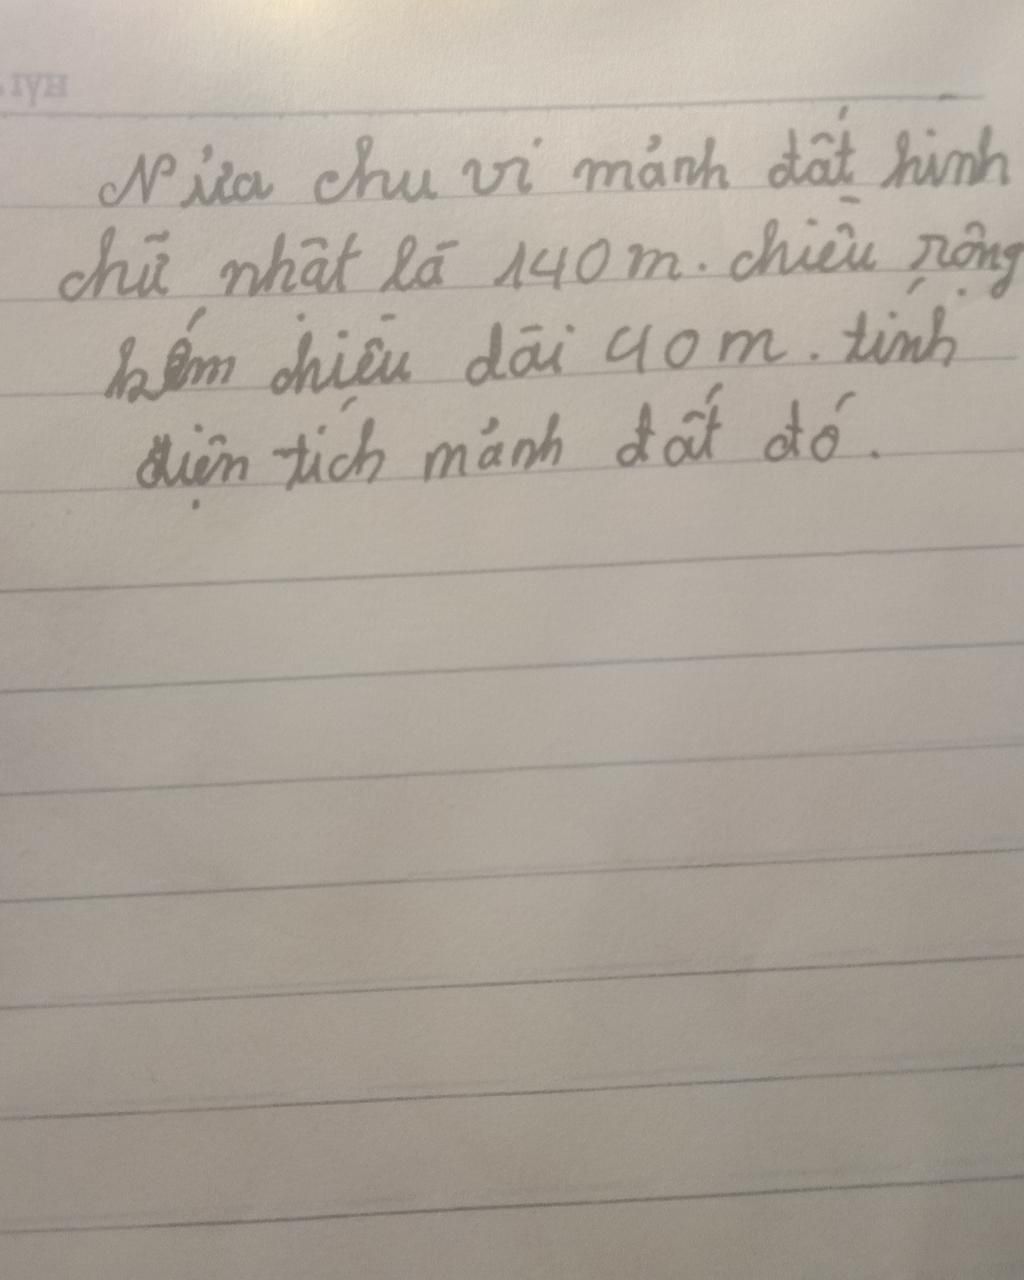 Nửa chu vi mảnh đất hình
chữ nhật là 140 m. chiều rộng
kém chiều dài 40 m. tính
diện tích mảnh đất đó.